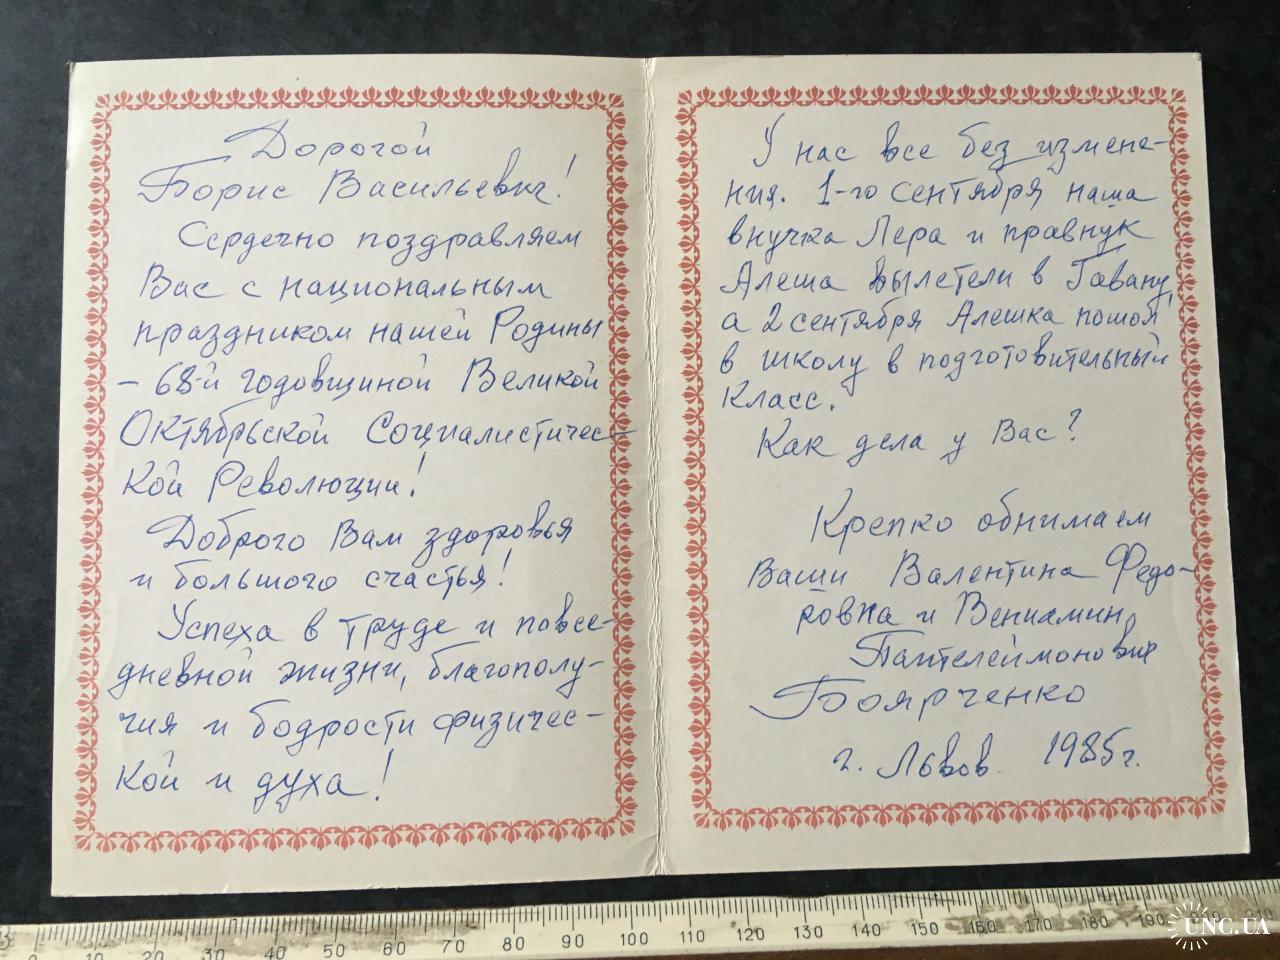 Дорогой
Борис Васильевич!
Сердечно поздравляем
Вас с национальным
праздником нашей Родины
– 68-й годовщиной Великой
Октябрьской Социалистичес-
кой Революции!
Доброго Вам здоровья
и большого счастья!
Успеха в труде и повсе-
дневной жизни, благополу-
чия и бодрости физичес-
кой и духа!
У нас все без измене-
ния. 1-го сентября наша
внучка Лера и правнук
Алеша вылетели в Гавану,
а 2 сентября Алешка пошол
в школу в подготовительный
класс.
Как дела у Вас?
Крепко обнимаем
Ваши Валентина Федо-
ровна и Вениамин
Пантелеймонович
Боярченко
г. Львов. 1985г.
0 10 20 30 40 50 60 70 80 90 100 110 120 130 140 150 160 170 180 190
UNC.UA